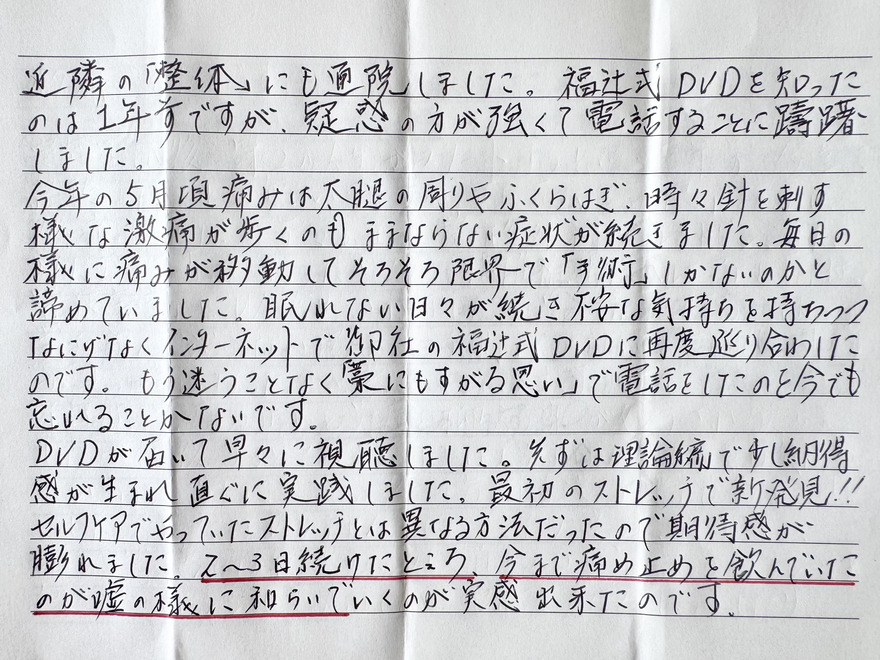 近隣の「整体」にも通院しました。福辻式DVDを知った
のは1年前ですが、疑惑の方が強くて電話することに躊躇
しました。
今年の5月頃痛みは太腿の周りやふくらはぎ、時々針を刺す
様な激痛が歩くのもままならない症状が続きました。毎日の
様に痛みが移動してそろそろ限界で「手術」しかないのかと
諦めていました。眠れない日々が続き不安な気持ちを持ちつつ
なにげなくインターネットで御社の福辻式DVDに再度巡り合わした
のです。もう迷うことなく「藁にもすがる思い」で電話をしたのを今でも
忘れることがないです。
DVDが届いて早々に視聴しました。先ずは理論編で少し納得
感が生まれ直ぐに実践しました。最初のストレッチで新発見!!
セルフケアでやっていたストレッチとは異なる方法だったので期待感が
膨れました。2〜3日続けたところ、今まで痛め止めを飲んでいた
のが嘘の様に和らいでいくのが実感出来たのです。